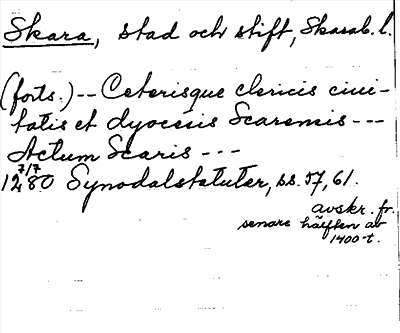 Skara, stad och stift, Skarab. l.
(forts.) -- Ceterisque clericis civi-
tatis et dyocesis Scarensis ---
Actum Scaris ---
7/7
1280 Synodalstatuter, ss. 57, 61.
avskr. fr.
senare hälften av
1400-t.